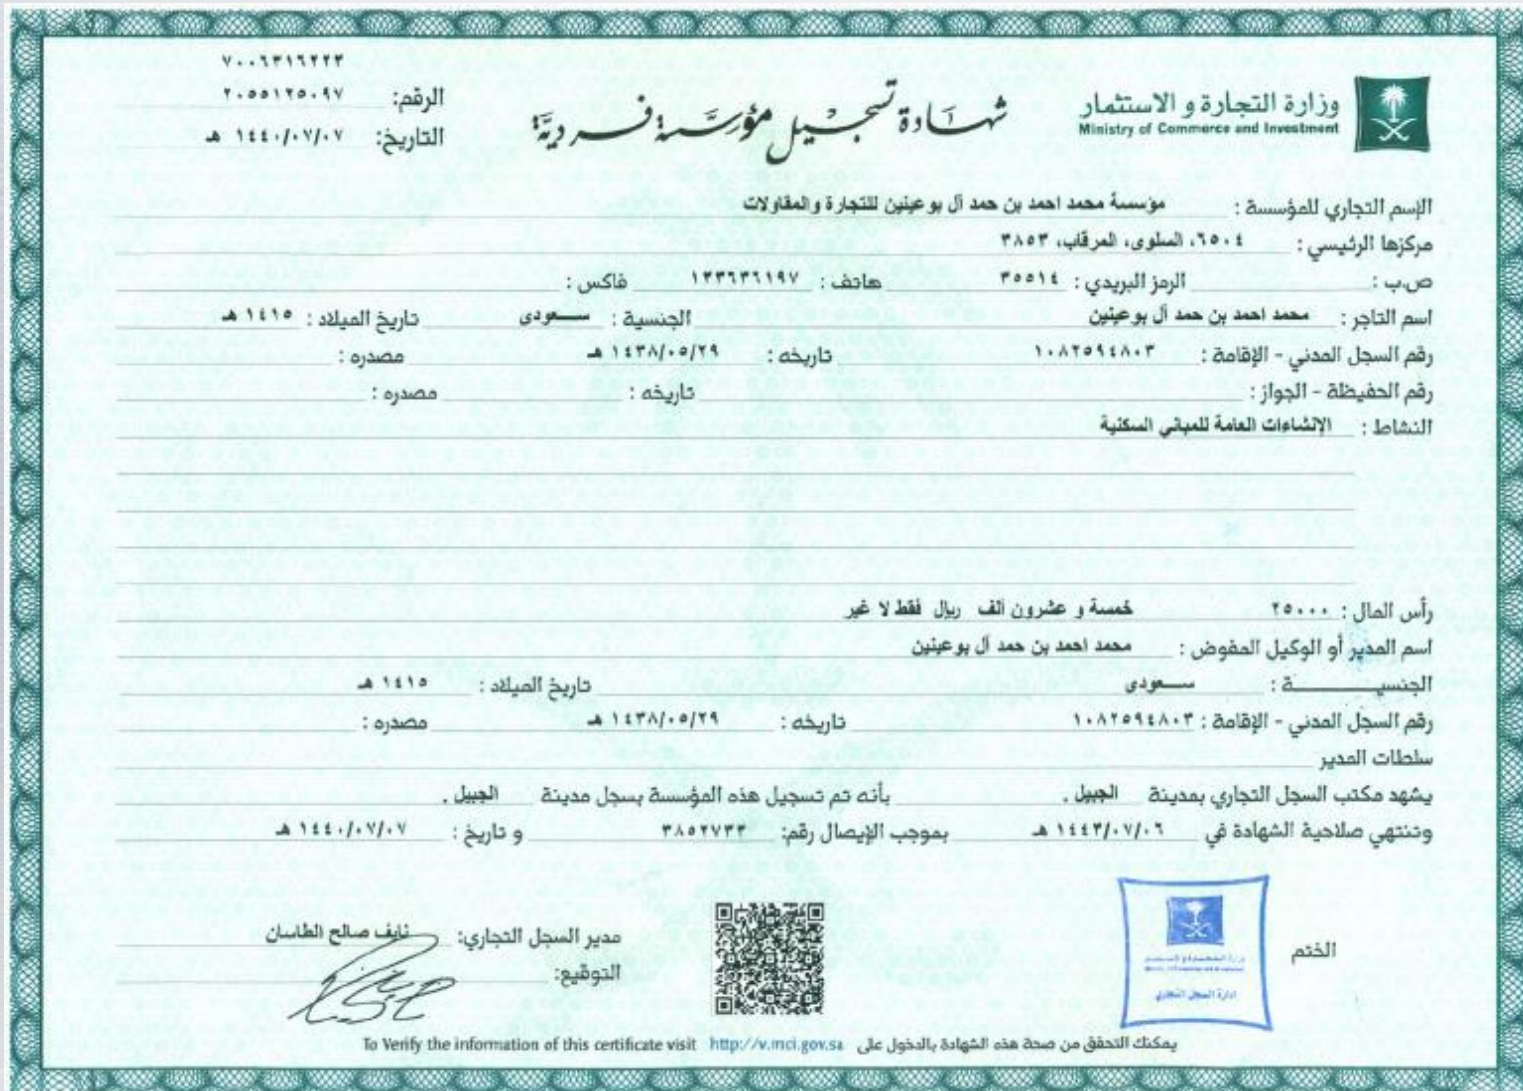 وزارة التجارة و الاستثمار
Ministry of Commerce and Investment
شهادة تسجيل مؤسسة فردية
٧٠٠٦٣١٦٢٢٣
الرقم: ٢٠٥٥١٢٥٠٩٧
التاريخ: ١٤٤٠/٠٧/٠٧ هـ
الإسم التجاري للمؤسسة : مؤسسة محمد احمد بن حمد آل بوعينين للتجارة والمقاولات
مركزها الرئيسي : ٦٥٠٤، السلوى، المرقاب، ٣٨٥٣
ص.ب : الرمز البريدي : ٣٥٥١٤ هاتف : ١٣٣٦٣٦١٩٧ فاكس :
اسم التاجر : محمد احمد بن حمد آل بوعينين الجنسية : سعودى تاريخ الميلاد : ١٤١٥ هـ
رقم السجل المدني - الإقامة : ١٠٨٢٥٩٤٨٠٣ تاريخه : ١٤٣٨/٠٥/٢٩ هـ مصدره :
رقم الحفيظة - الجواز : تاريخه : مصدره :
النشاط : الإنشاءات العامة للمباني السكنية
رأس المال : ٢٥٠٠٠ خمسة و عشرون الف ريال فقط لا غير
اسم المدير أو الوكيل المفوض : محمد احمد بن حمد آل بوعينين
الجنسيـــــة : سعودى تاريخ الميلاد : ١٤١٥ هـ
رقم السجل المدني - الإقامة : ١٠٨٢٥٩٤٨٠٣ تاريخه : ١٤٣٨/٠٥/٢٩ هـ مصدره :
سلطات المدير
يشهد مكتب السجل التجاري بمدينة الجبيل . بأنه تم تسجيل هذه المؤسسة بسجل مدينة الجبيل .
وتنتهي صلاحية الشهادة في ١٤٤٣/٠٧/٠٦ هـ بموجب الإيصال رقم: ٣٨٥٢٧٣٣ و تاريخ : ١٤٤٠/٠٧/٠٧ هـ
الختم
وزارة التجارة و الاستثمار
ادارة السجل التجاري
مدير السجل التجاري: نايف صالح الطاسان
التوقيع:
يمكنك التحقق من صحة هذه الشهادة بالدخول على http://v.mci.gov.sa To Verify the information of this certificate visit